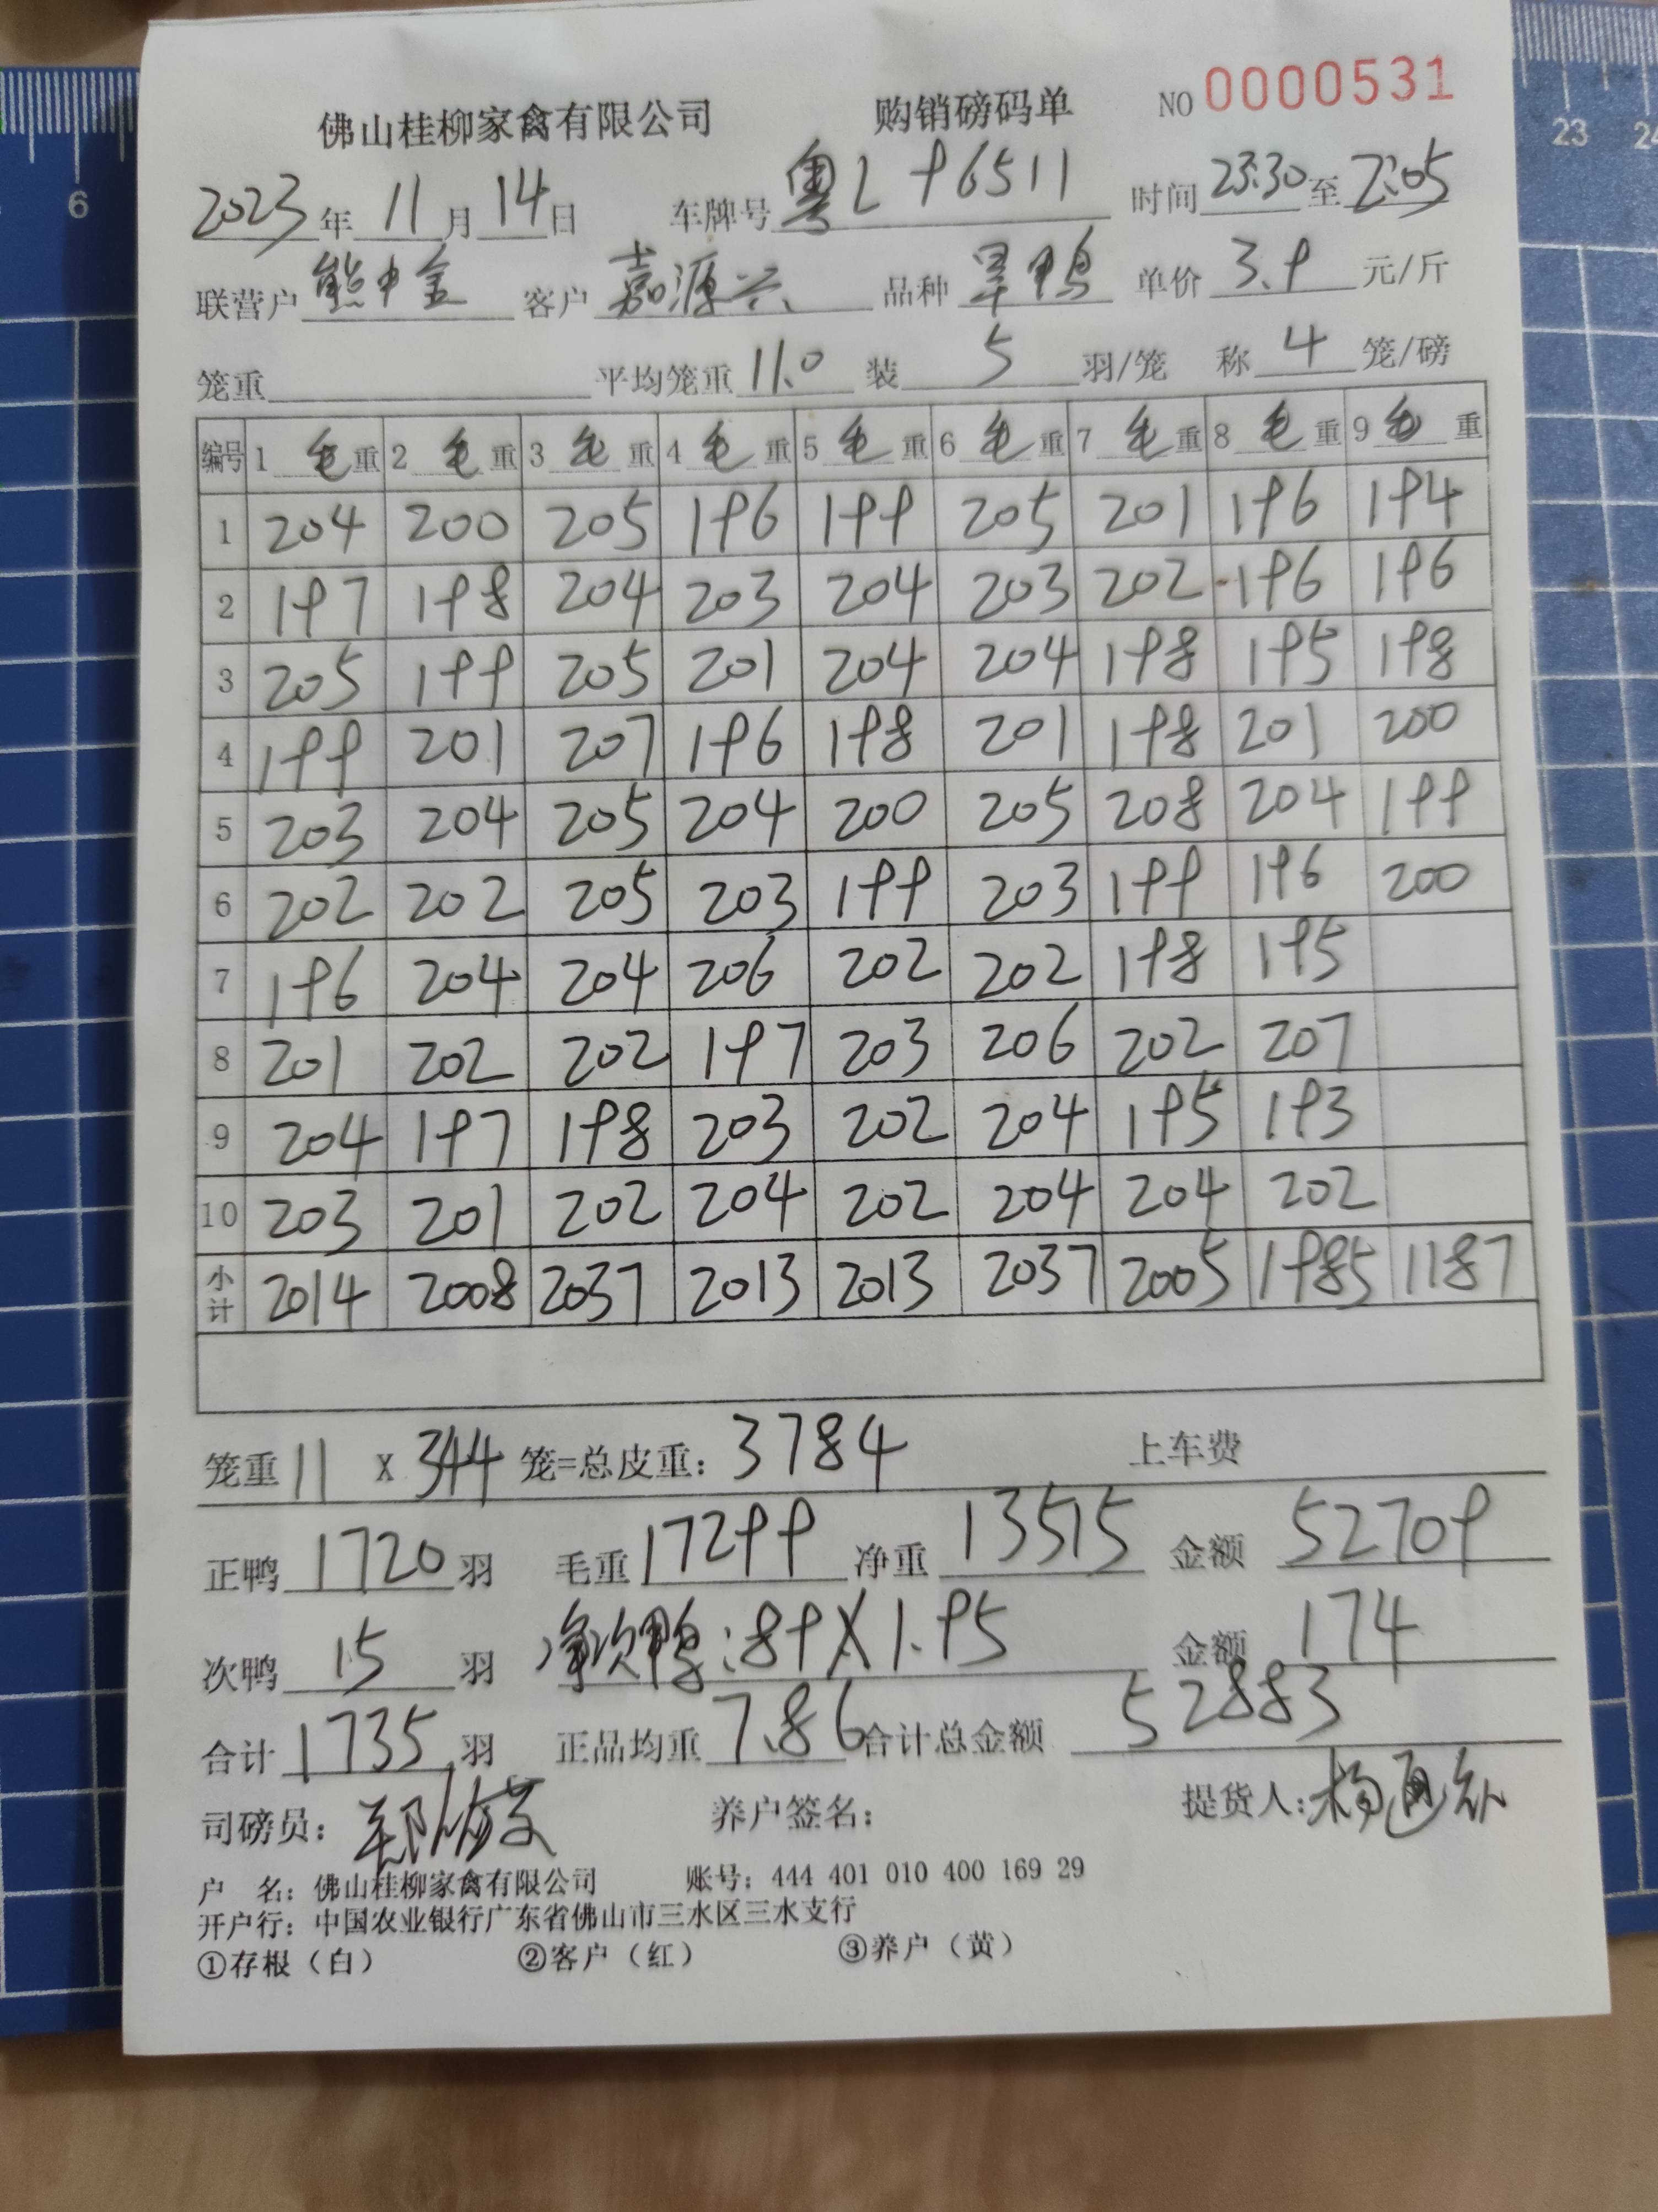 佛山桂柳家禽有限公司 购销磅码单 NO 0000531
2023年 11月 14日 车牌号 粤L 96511 时间 23:30 至 2:05
联营户 熊中金 客户 嘉源兴 品种 旱鸭 单价 3.9 元/斤
笼重 平均笼重 11.0 装 5 羽/笼 称 4 笼/磅
编号 1 毛重 2 毛重 3 毛重 4 毛重 5 毛重 6 毛重 7 毛重 8 毛重 9 毛重
1 204 200 205 196 199 205 201 196 194
2 197 198 204 203 204 203 202 196 196
3 205 199 205 201 204 204 198 195 198
4 199 201 207 196 198 201 198 201 200
5 203 204 205 204 200 205 208 204 199
6 202 202 205 203 199 203 199 196 200
7 196 204 204 206 202 202 198 195
8 201 202 202 197 203 206 202 207
9 204 197 198 203 202 204 195 193
10 203 201 202 204 202 204 204 202
小计 2014 2008 2037 2013 2013 2037 2005 1985 1187
笼重 11 X 344 笼=总皮重: 3784 上车费
正鸭 1720 羽 毛重 17299 净重 13515 金额 52709
次鸭 15 羽 净次鸭:89X1.95 金额 174
合计 1735 羽 正品均重 7.86 合计总金额 52883
司磅员: 养户签名: 提货人: 杨通
户 名: 佛山桂柳家禽有限公司 账号: 444 401 010 400 169 29
开户行: 中国农业银行广东省佛山市三水区三水支行
①存根（白） ②客户（红） ③养户（黄）
6
23
24